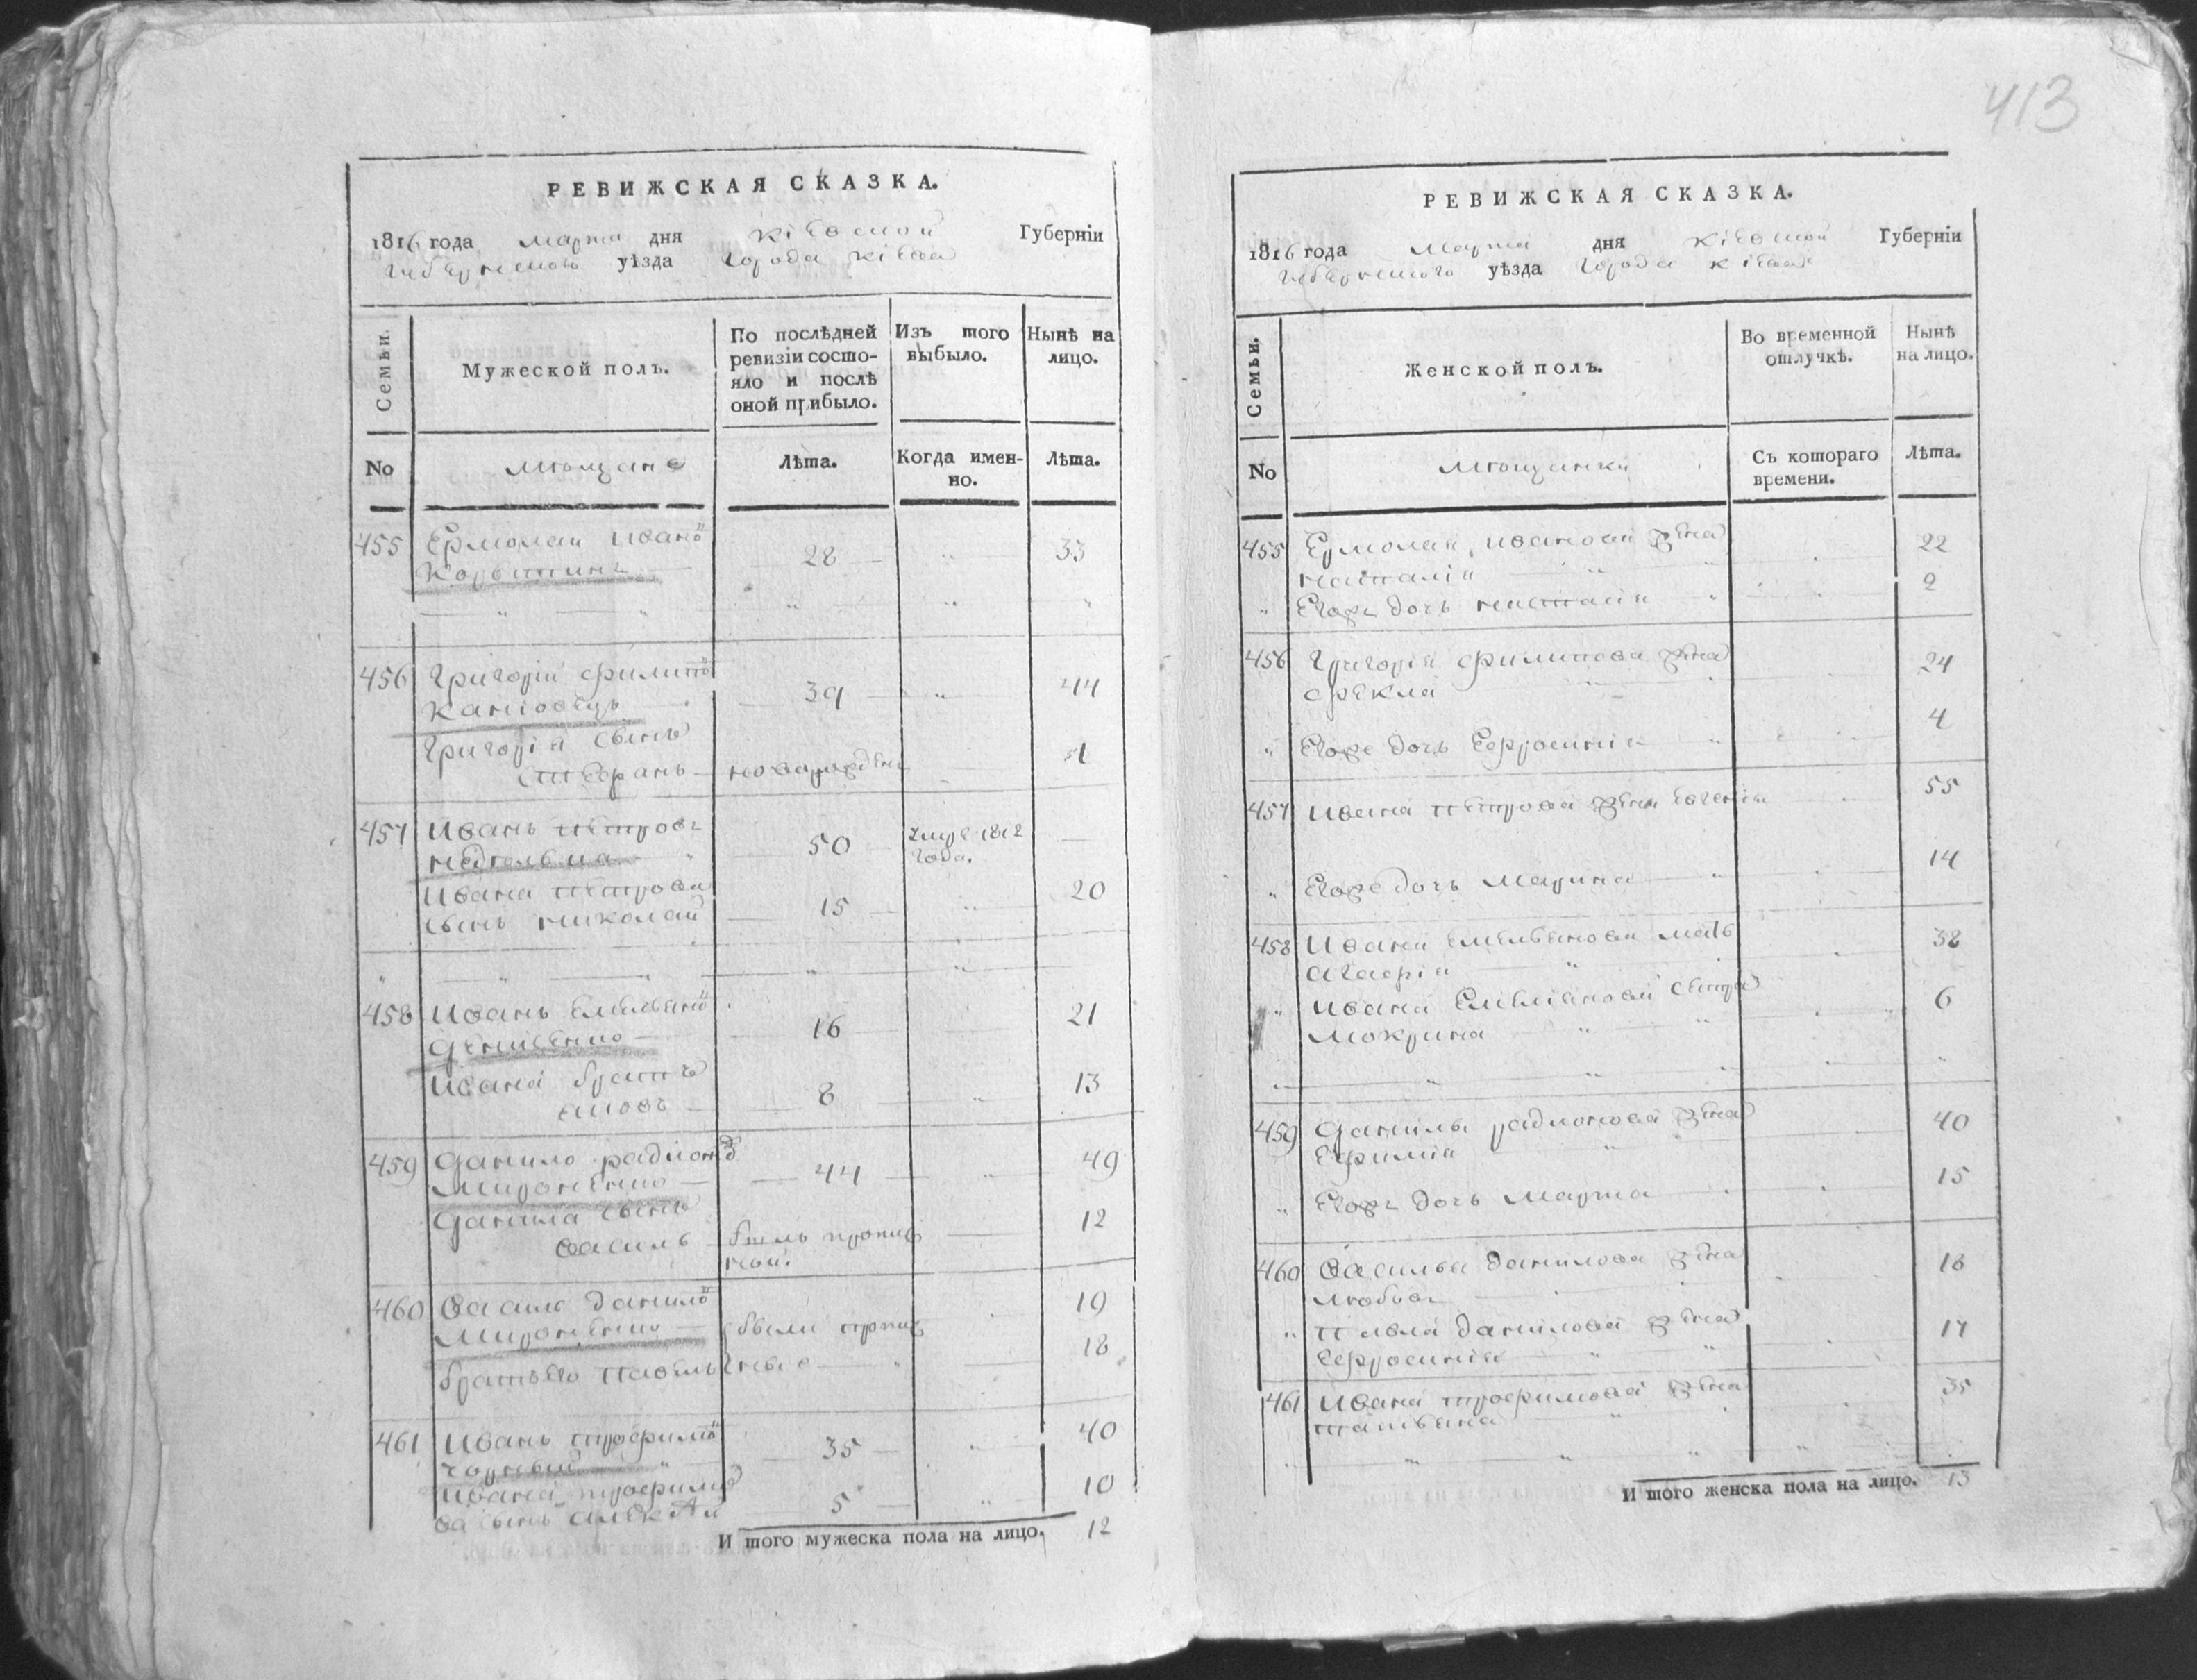 413
РЕВИЖСКАЯ СКАЗКА.
1816 года марта дня Кіевской Губерніи
Губернского уѣзда города Кіева
Семьи.
Мужеской полъ.
По послѣдней ревизіи состо-
яло и послѣ оной прибыло.
Изъ того выбыло.
Нынѣ на лицо.
No
мѣщане
Лѣта.
Когда имен-
но.
Лѣта.
455 Ермолай Ивано
28 33
456 Григорій Филипо
Каніовецъ 39 44
Григорія сынъ
Стефанъ новорожденъ 1
457 Иванъ Петровъ
50 1812
года.
Ивана Петрова
сынъ Николай 15 20
458 Иванъ Емельяно
Денисенко 16 21
Ивана братъ
Яковъ 8 13
459 Данило Радіоно
Мироненко 44 49
Данила сынъ
Василь былъ пропис
ной. 12
460 Василь Данило
Мироненко были пропис 19
братъ его Павелъ ные 18
461 Иванъ Трофимо
Чорный 35 40
Ивана Трофимо
ва сынъ Алексѣй 5 10
И того мужеска пола на лицо. 12
РЕВИЖСКАЯ СКАЗКА.
1816 года марта дня Кіевской Губерніи
Губернского уѣзда города Кіева
Семьи.
Женской полъ.
Во временной отлучкѣ.
Нынѣ на лицо.
No
мѣщанки
Съ котораго времени.
Лѣта.
455 Ермолая Иванова жена 22
Наталія
Егоже дочь Настасія 2
456 Григорія Филипова жена
Фекла 24
Егоже дочь Ефросинія 4
457 Ивана Петрова жена Евгенія 55
Егоже дочь Марина 14
458 Ивана Емельянова мать 38
Агафія
Ивана Емеліянова сестра 6
Мокрина
459 Данила Радионова жена 40
Ефимія
Егоже дочь Марта 15
460 Василья Данилова жена 18
Любовь
Павла Данілова жена 17
Ефросинія
461 Ивана Трофимова жена 35
Татьяна
И того женска пола на лицо. 13